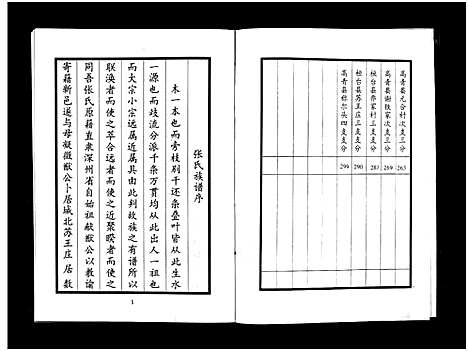 高青县元合村次支支分 263
高青县谢殿家次三支分 269
桓台县乔家村三支支分 287
桓台县苏王庄三支支分 290
高青县杜尔头四支支分 299
张氏族谱序
木一本也而旁枝别干还条叠叶皆从此生水
一源也而歧流分派千条万贯均从此出人一祖也
而大宗小宗远近属具由此判故族之有谱所以
联涣者而使之萃合远者而使之近聚暌者而使之
同吾张氏原籍直隶深州省自始祖献猷公以教谕
寄籍新邑遂与母凝微猷公卜居城北苏王庄居数
1